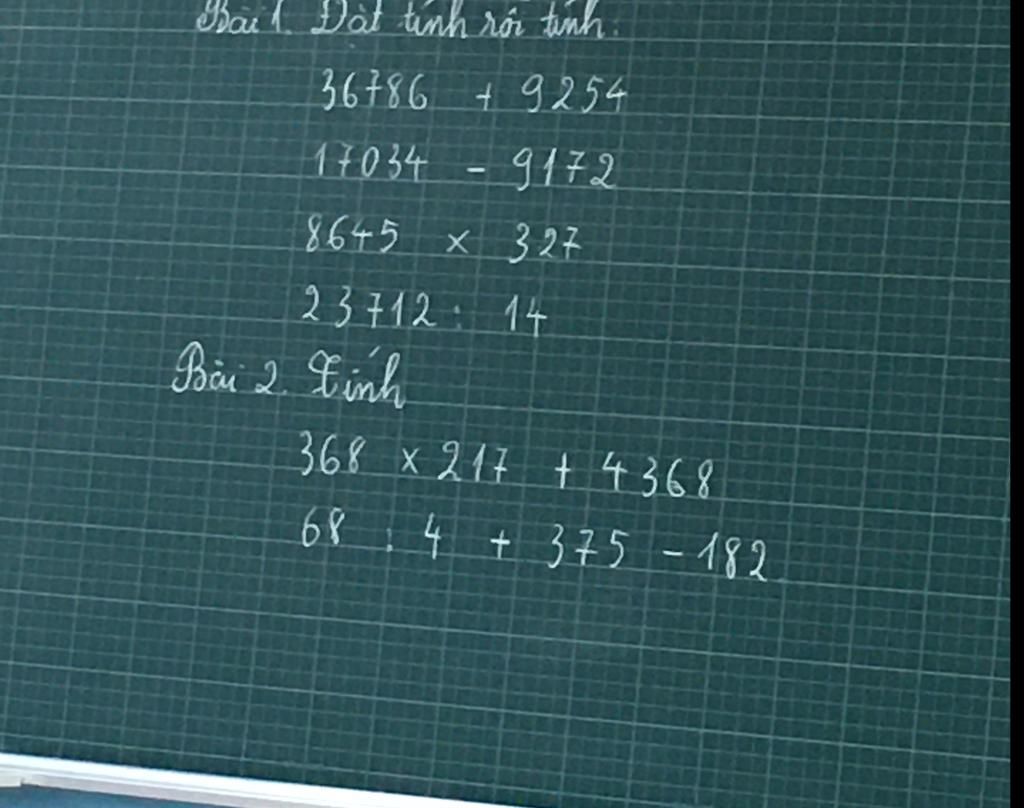 Bài 1. Đặt tính rồi tính:
36786 + 9254
17034 - 9172
8645 x 327
23712 : 14
Bài 2. Tính
368 x 217 + 4368
68 : 4 + 375 - 182